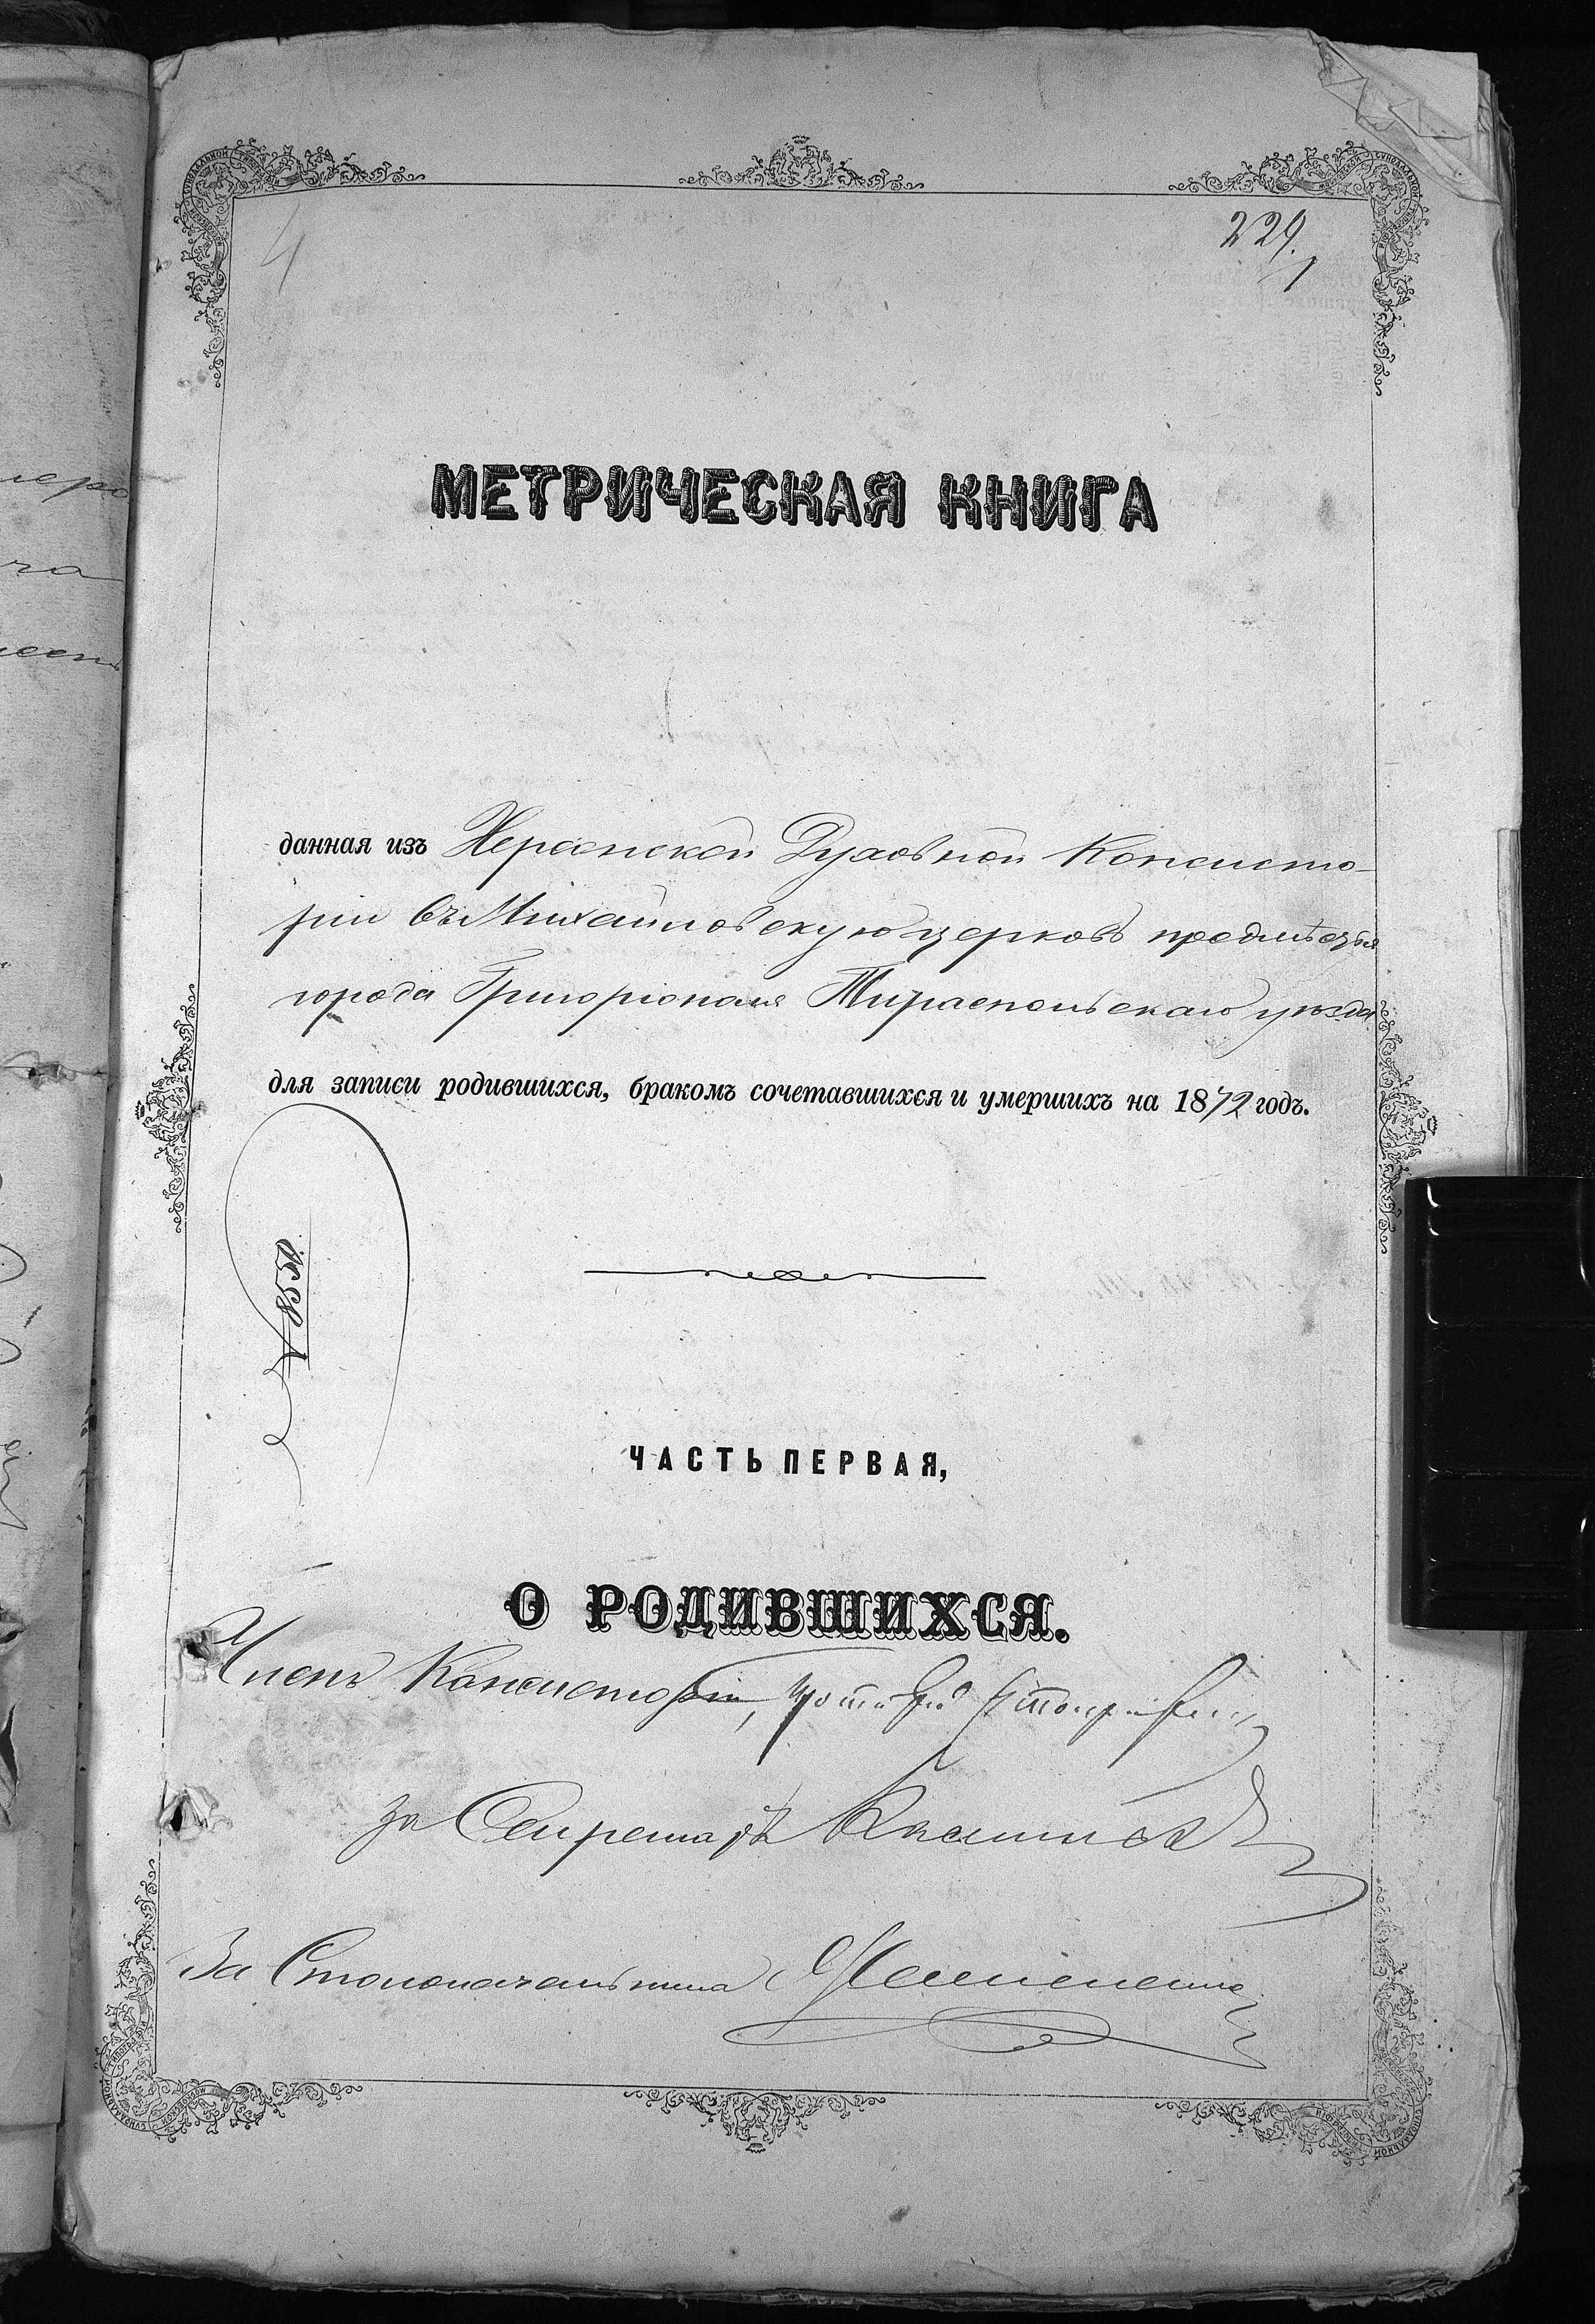 4
229.
1
МЕТРИЧЕСКАЯ КНИГА
данная изъ Херсонской Духовной Консисто-
ріи въ Михайловскую церковь предмѣстья
города Григоріополя Тираспольскаго уѣзда
для записи родившихся, бракомъ сочетавшихся и умершихъ на 1872 годъ.
ЧАСТЬ ПЕРВАЯ,
О РОДИВШИХСЯ.
Членъ Консисторіи, Протоіерей
За Секретаря
За Столоначальника